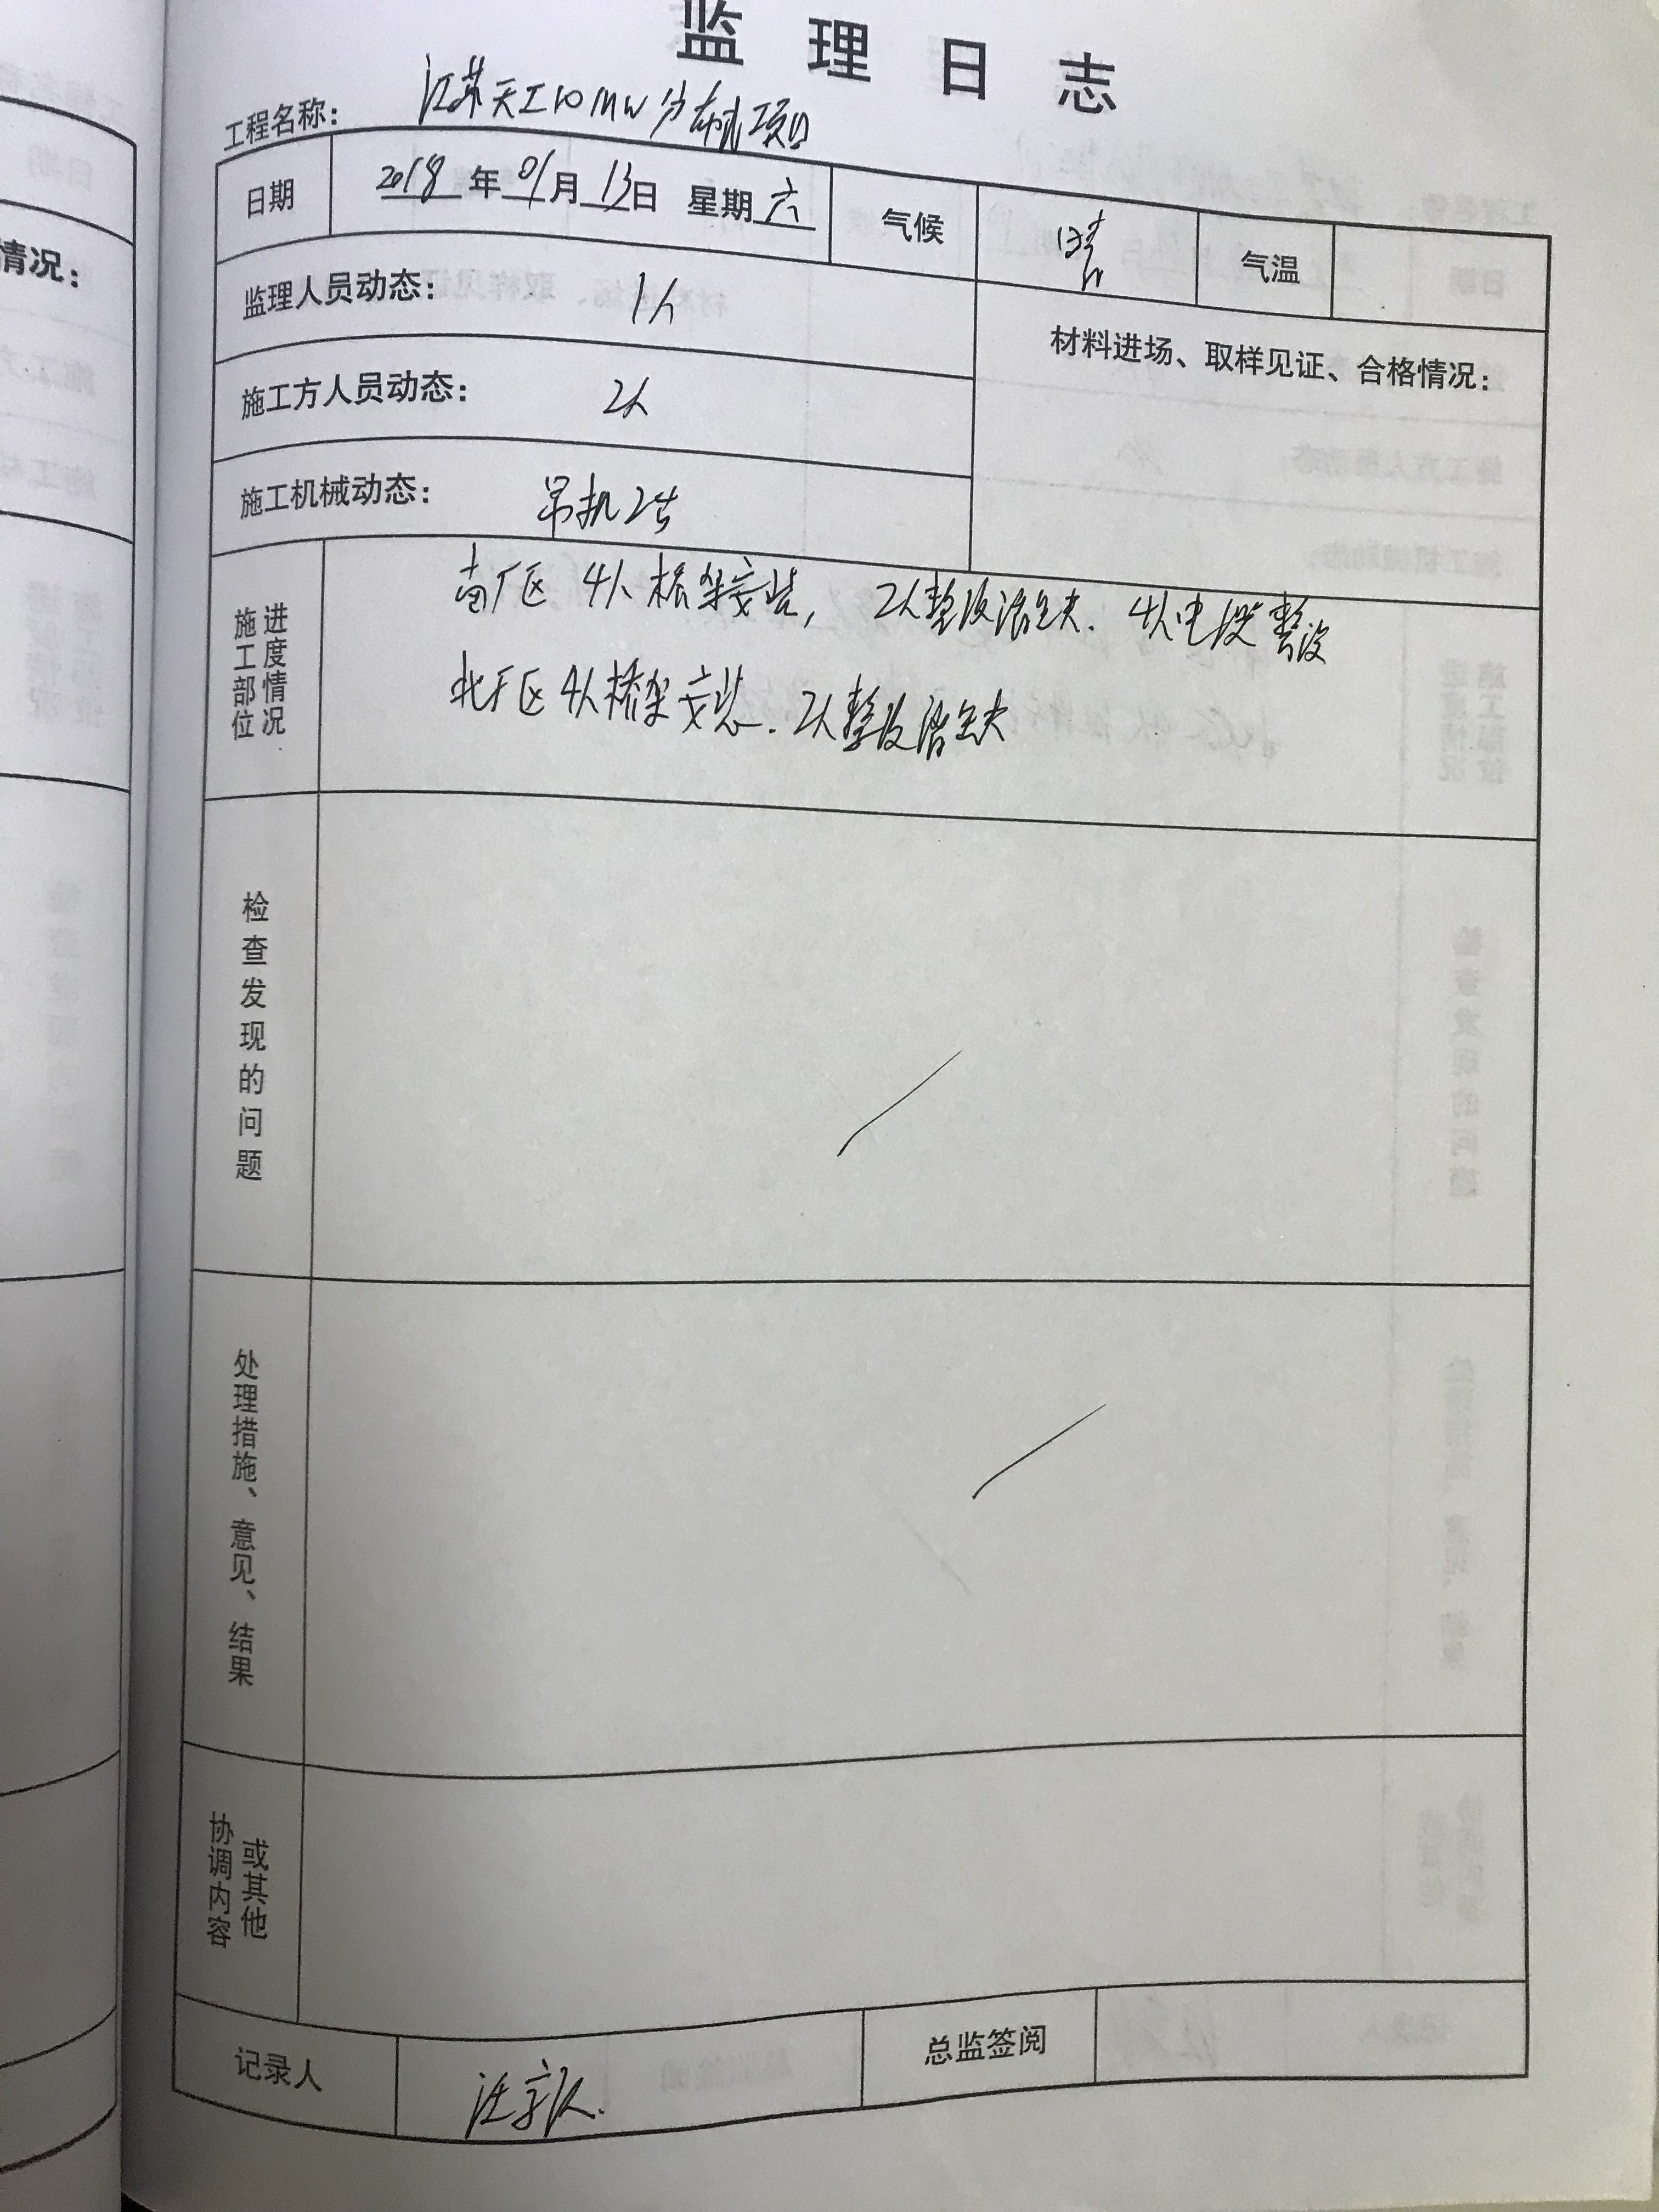 监理日志
工程名称： 江苏天工10MW分布式项目
日期 2018年01月13日 星期六 气候 晴 气温
监理人员动态： 1人
材料进场、取样见证、合格情况：
施工方人员动态： 2人
施工机械动态： 吊机2台
施工部位 进度情况
南厂区 4人桥架安装， 2人整改消缺. 4人电缆整改
北厂区 4人桥架安装. 2人整改消缺
检查发现的问题
处理措施、意见、结果
协调内容 或其他
记录人 总监签阅
情况：